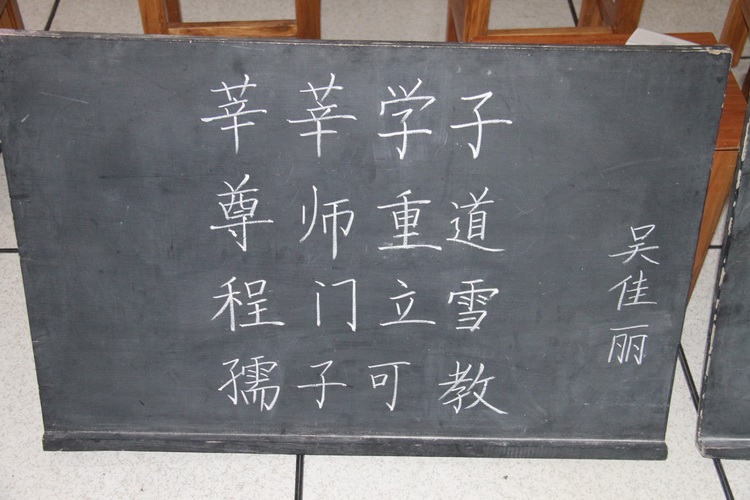 莘莘学子
尊师重道
程门立雪
孺子可教
吴佳丽